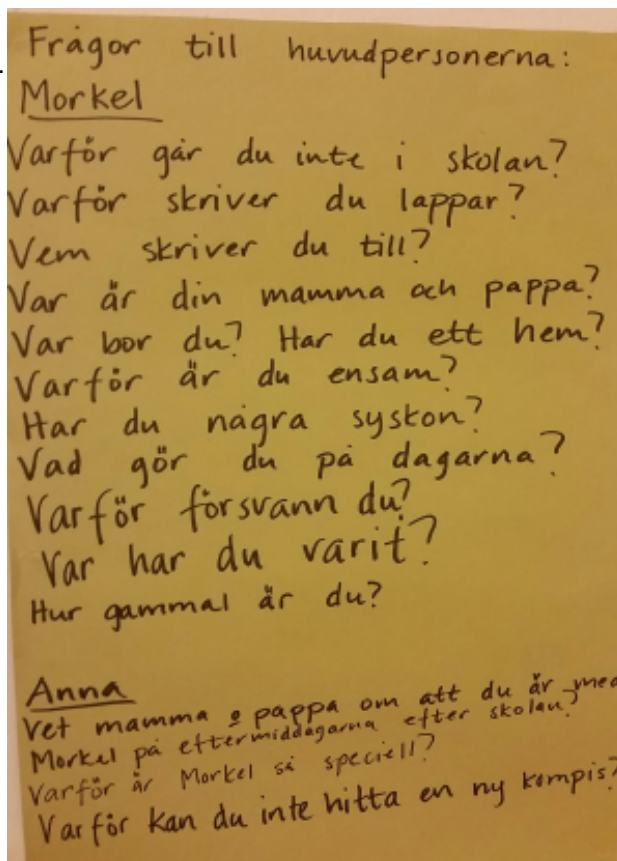 Frågor till huvudpersonerna:
Morkel
Varför går du inte i skolan?
Varför skriver du lappar?
Vem skriver du till?
Var är din mamma och pappa?
Var bor du? Har du ett hem?
Varför är du ensam?
Har du några syskon?
Vad gör du på dagarna?
Varför försvann du?
Var har du varit?
Hur gammal är du?
Anna
Vet mamma o pappa om att du är med
Morkel på eftermiddagarna efter skolan?
Varför är Morkel så speciell?
Varför kan du inte hitta en ny kompis?